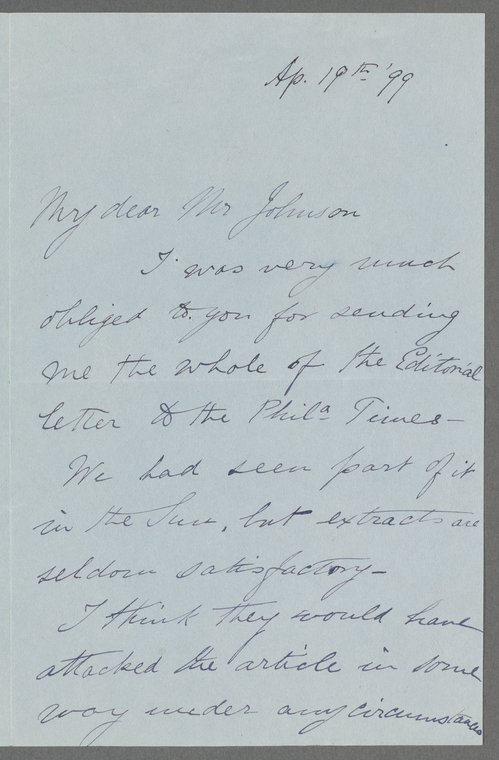 Ap. 19th '99
My dear Mr Johnson
I was very much
obliged to you for sending
me the whole of the Editorial
letter to the Phila Times—
We had seen part of it
in the Sun, but extracts are
seldom satisfactory—
I think they would have
attacked the article in some
way under any circumstances